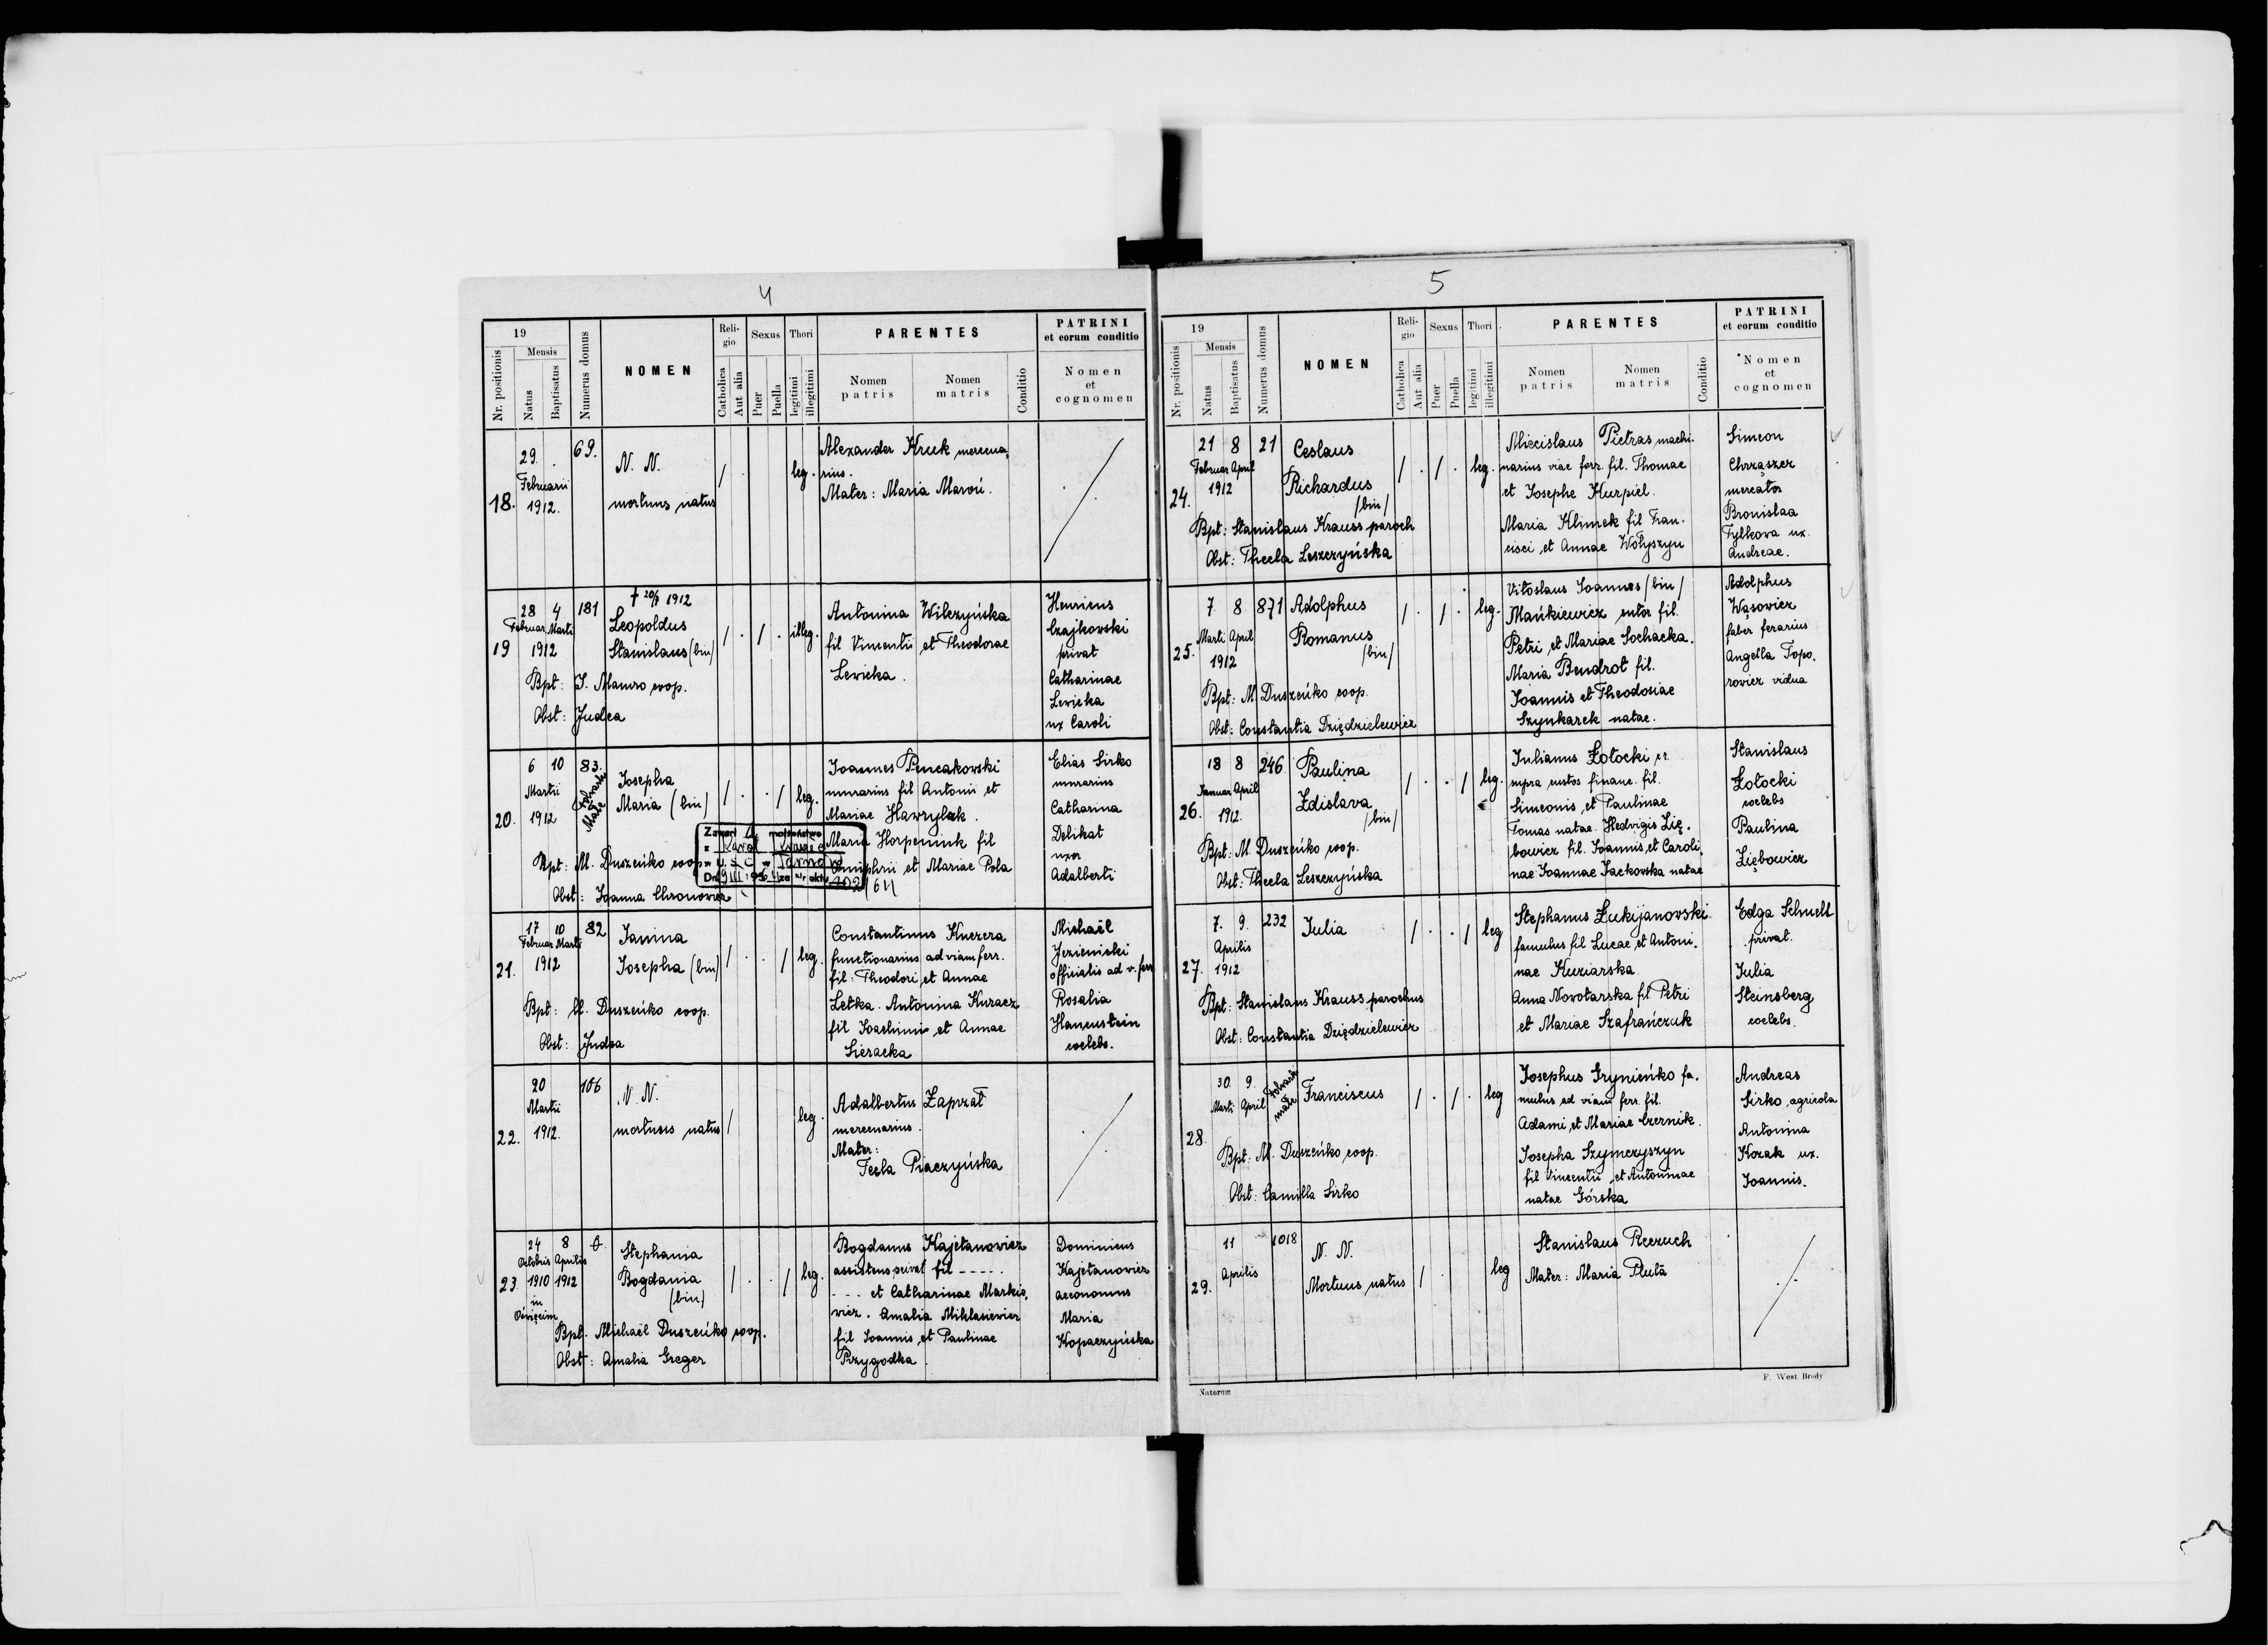 4
19
Nr. positionis
Mensis
Natus
Baptisatus
Numerus domus
NOMEN
Religio
Catholica
Aut alia
Sexus
Puer
Puella
Thori
legitimi
illegitimi
PARENTES
Nomen patris
Nomen matris
Conditio
PATRINI
et eorum conditio
Nomen
et
cognomen
18.
29.
Februarii
1912.
69.
N. N.
mortuus natus
leg.
Alexander Kruk mercena,
rius.
Mater: Maria
19
28 4
Februar Marti
1912
181
1912
Leopoldus
Stanislaus (bin)
Bpt: S. Mauro coop.
Obst: Judea
illeg.
Antonina Wilczyńska
fil Vincentii et Theodorae
Lewicka.
Henricus
Czajkowski
privat
Catharinae
Lewicka
ux Caroli
20.
6 10
Martii
1912
83.
Josepha
Maria (bin)
Bpt: M. Duszeńko coop.
Obst: Joanna Chronowicz
Zawarł małżeństwo
za Nr aktu
leg.
Joannes Pencakowski
murarius fil Antonii et
Mariae Hawrylak.
Maria Horpeniuk fil
Onuphrii et Mariae Pola
Elias Sirko
murarius
Catharina
Delikat
uxor
Adalberti
21.
17 10
Februar Marti
1912
82
Janina
Josepha (bin)
Bpt: M. Duszeńko coop.
Obst: Judea
leg.
Constantinus Kuczera
functionarius ad viam ferr.
fil: Theodori et Annae
Letka. Antonina Kuracz
fil Joachimi et Annae
Sieracka
Michaël
Jezienicki
officialis ad v. ferr
Rosalia
Hanenstein
coelebs.
22.
20
Martii
1912.
106
N. N.
mortuus natus
leg.
Adalbertus Zaprzał
mercenarius.
Mater:
Tecla Piaczyńska
23
24 8
Octobris Aprilis
1910 1912
in
Oświęcim
Stephania
Bogdania
(bin)
Bpt. Michaël Duszeńko coop.
Obst: Amalia Greger
leg.
Bogdanus Kajetanowicz
assistens privat fil -----
--- et Catharinae Markie,
wicz. Amalia Miklasiewicz
fil Joannis et Paulinae
Przygodka
Dominicus
Kajetanowicz
aeconomus
Maria
Kopaczyńska
5
19
Nr. positionis
Mensis
Natus
Baptisatus
Numerus domus
NOMEN
Religio
Catholica
Aut alia
Sexus
Puer
Puella
Thori
legitimi
illegitimi
PARENTES
Nomen patris
Nomen matris
Conditio
PATRINI
et eorum conditio
Nomen
et
cognomen
24.
21 8
Februar April
1912
21
Ceslaus
Richardus
/bin/
Bpt: Stanislaus Krauss paroch
Obst: Thecla Leszczyńska
leg.
Miecislaus Pietras machi-
narius viae ferr. fil. Thomae
et Josephe Kurpiel.
Maria Klimek fil Fran-
cisci et Annae Wołyszyn
Simeon
Chrząszcz
mercator
Bronislaa
Fylkova ux.
Andreae.
25.
7. 8.
Marti April
1912
871
Adolphus
Romanus
/bin/
Bpt: M. Duszeńko coop.
Obst: Constantia Dziędzielewicz
leg.
Vitoslaus Joannes /bin/
Mańkiewicz sutor fil.
Petri et Mariae Sochacka.
Maria Bendrot fil.
Joannis et Theodosiae
Szynkarek natae.
Adolphus
Wąsowicz
faber ferarius
Angella Topo.
rowicz vidua
26.
18 8
Januar April
1912.
246
Paulina
Zdislava
/bin/
Bpt: M. Duszeńko coop.
Obst: Thecla Leszczyńska
leg.
Julianus Żołocki cr
supra custos financ. fil.
Simeonis et Paulinae
Tomas natae. Hedvigis Zię.
bowicz fil. Joannis et Caroli.
nae Joannae Jackowska natae
Stanislaus
Żołocki
coelebs
Paulina
Ziębowicz
27.
7. 9.
Aprilis
1912
232
Julia
Bpt: Stanislaus Krauss parochus
Obst: Constantia Dziędzielewicz
leg
Stephanus Łukijanowski
famulus fil Lucae et Antoni.
nae Kuziarska.
Anna Nowotarska fil Petri
et Mariae Szafrańczuk
Edga Schnell
privat.
Julia
Steinsberg
coelebs.
28.
30. 9.
Marti April
Franciscus
Bpt: M. Duszeńko coop.
Obst: Camilla Sirko
leg
Josephus Grynieńko fa.
mulus ad viam ferr. fil.
Adami et Mariae Czernik.
Josepha Szymczyszyn
fil Vincentii et Antoninae
natae Górska
Andreas
Sirko agricola
Antonina
Kozak ux.
Joannis.
29.
11
Aprilis
1018
N. N.
Mortuus natus
leg
Stanislaus Reczuch
Mater: Maria Pluta
Natorum
F. West Brody